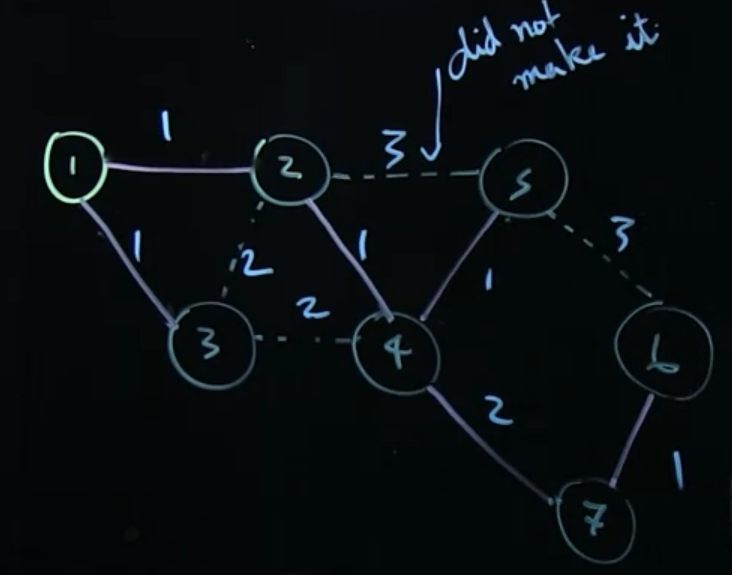 did not
make it
1
3
1
2
5
1
2
1
3
2
1
3
4
6
2
1
7